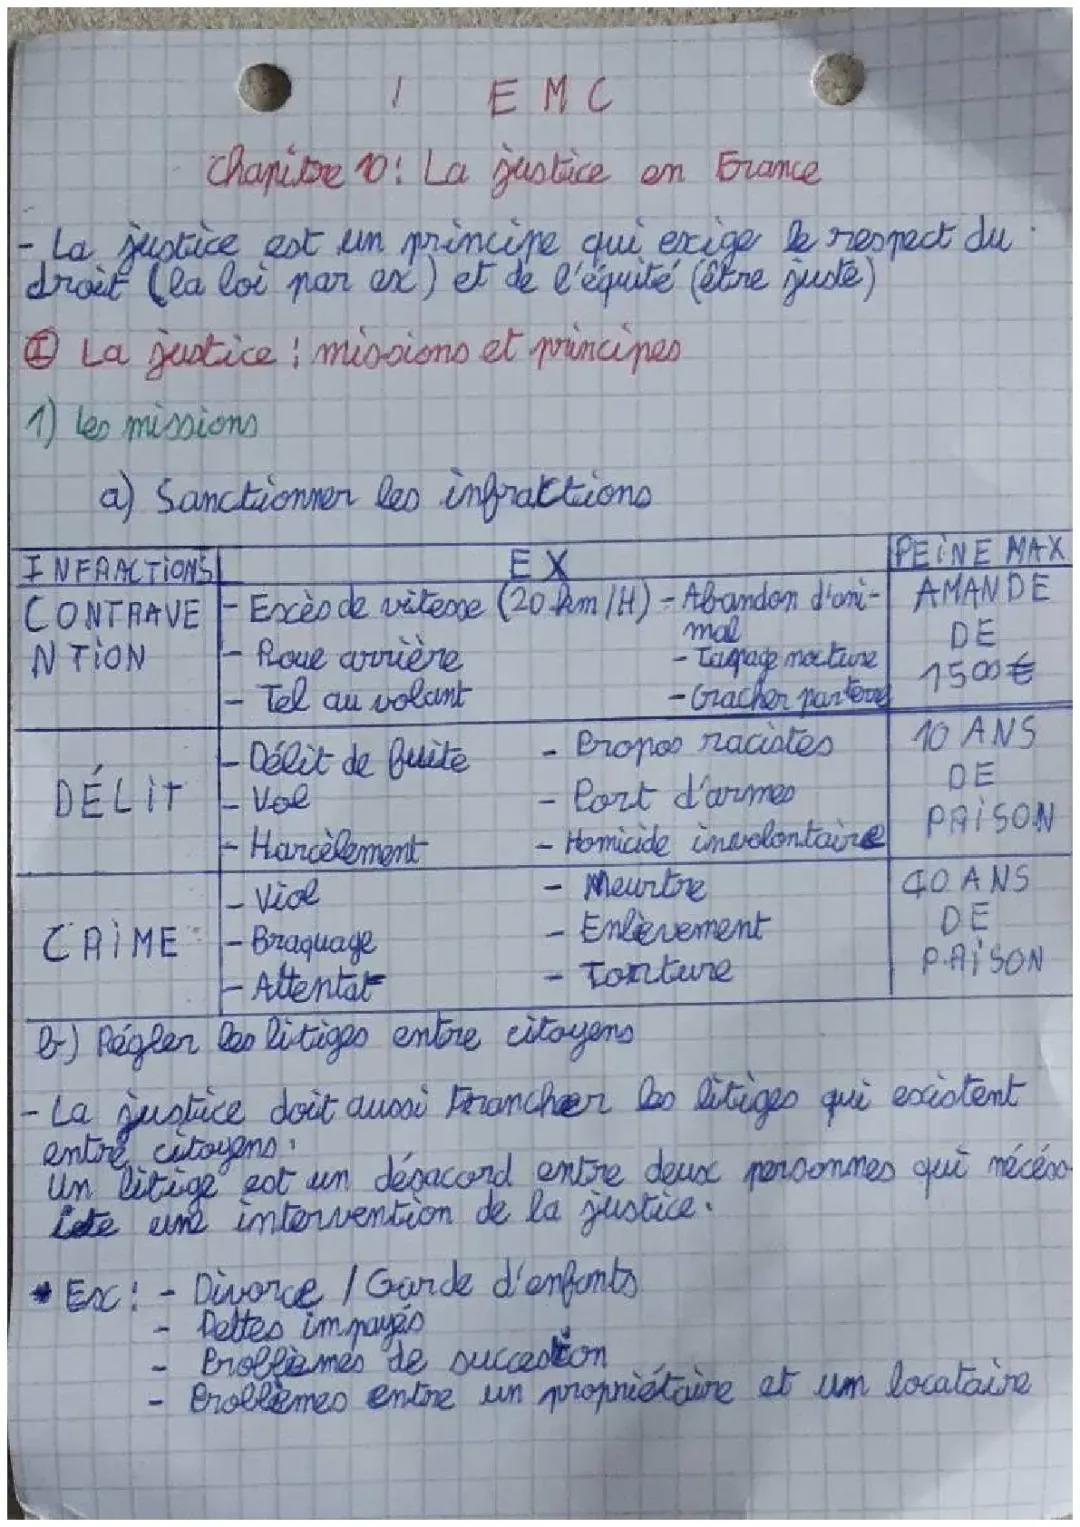 1 EMC
Chapitre 10: La justice en France
- La justice est un principe qui exige le respect du
droit (la loi par ex) et de l'équité (être juste)
I La justice : missions et principes
1) Les missions
a) Sanctionner les infraktions
INFRACTIONS EX PEINE MAX
CONTRAVE - Excès de vitesse (20 km/H) - Abandon d'ani- AMANDE
mal DE
NTION - Roue arrière - Tapage nocture 1500€
- Tel au volant - Cracher par terre
- Délit de fuite - Propos racistes 10 ANS
DÉLIT - Vol - Port d'armes DE
- Harcèlement - Homicide involontaire PRISON
- Viol - Meurtre 40 ANS
CRIME - Braquage - Enlèvement DE
- Attentat - Torture PRISON
b) Régler les litiges entre citoyens
- La justice doit aussi trancher les litiges qui existent
entre citoyens.
Un litige est un désacord entre deux personnes qui nécéss-
itete une intervention de la justice.
* Ex: - Divorce / Garde d'enfants
- Dettes impayés
- Problèmes de succestion
- Problèmes entre un propriétaire et um locataire